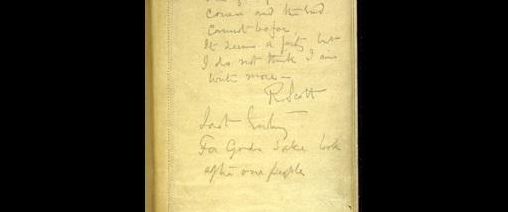 course and the end
cannot be far
It seems a pity but
I do not think I can
write more –
R. Scott
Last Entry
For Gods sake look
after our people